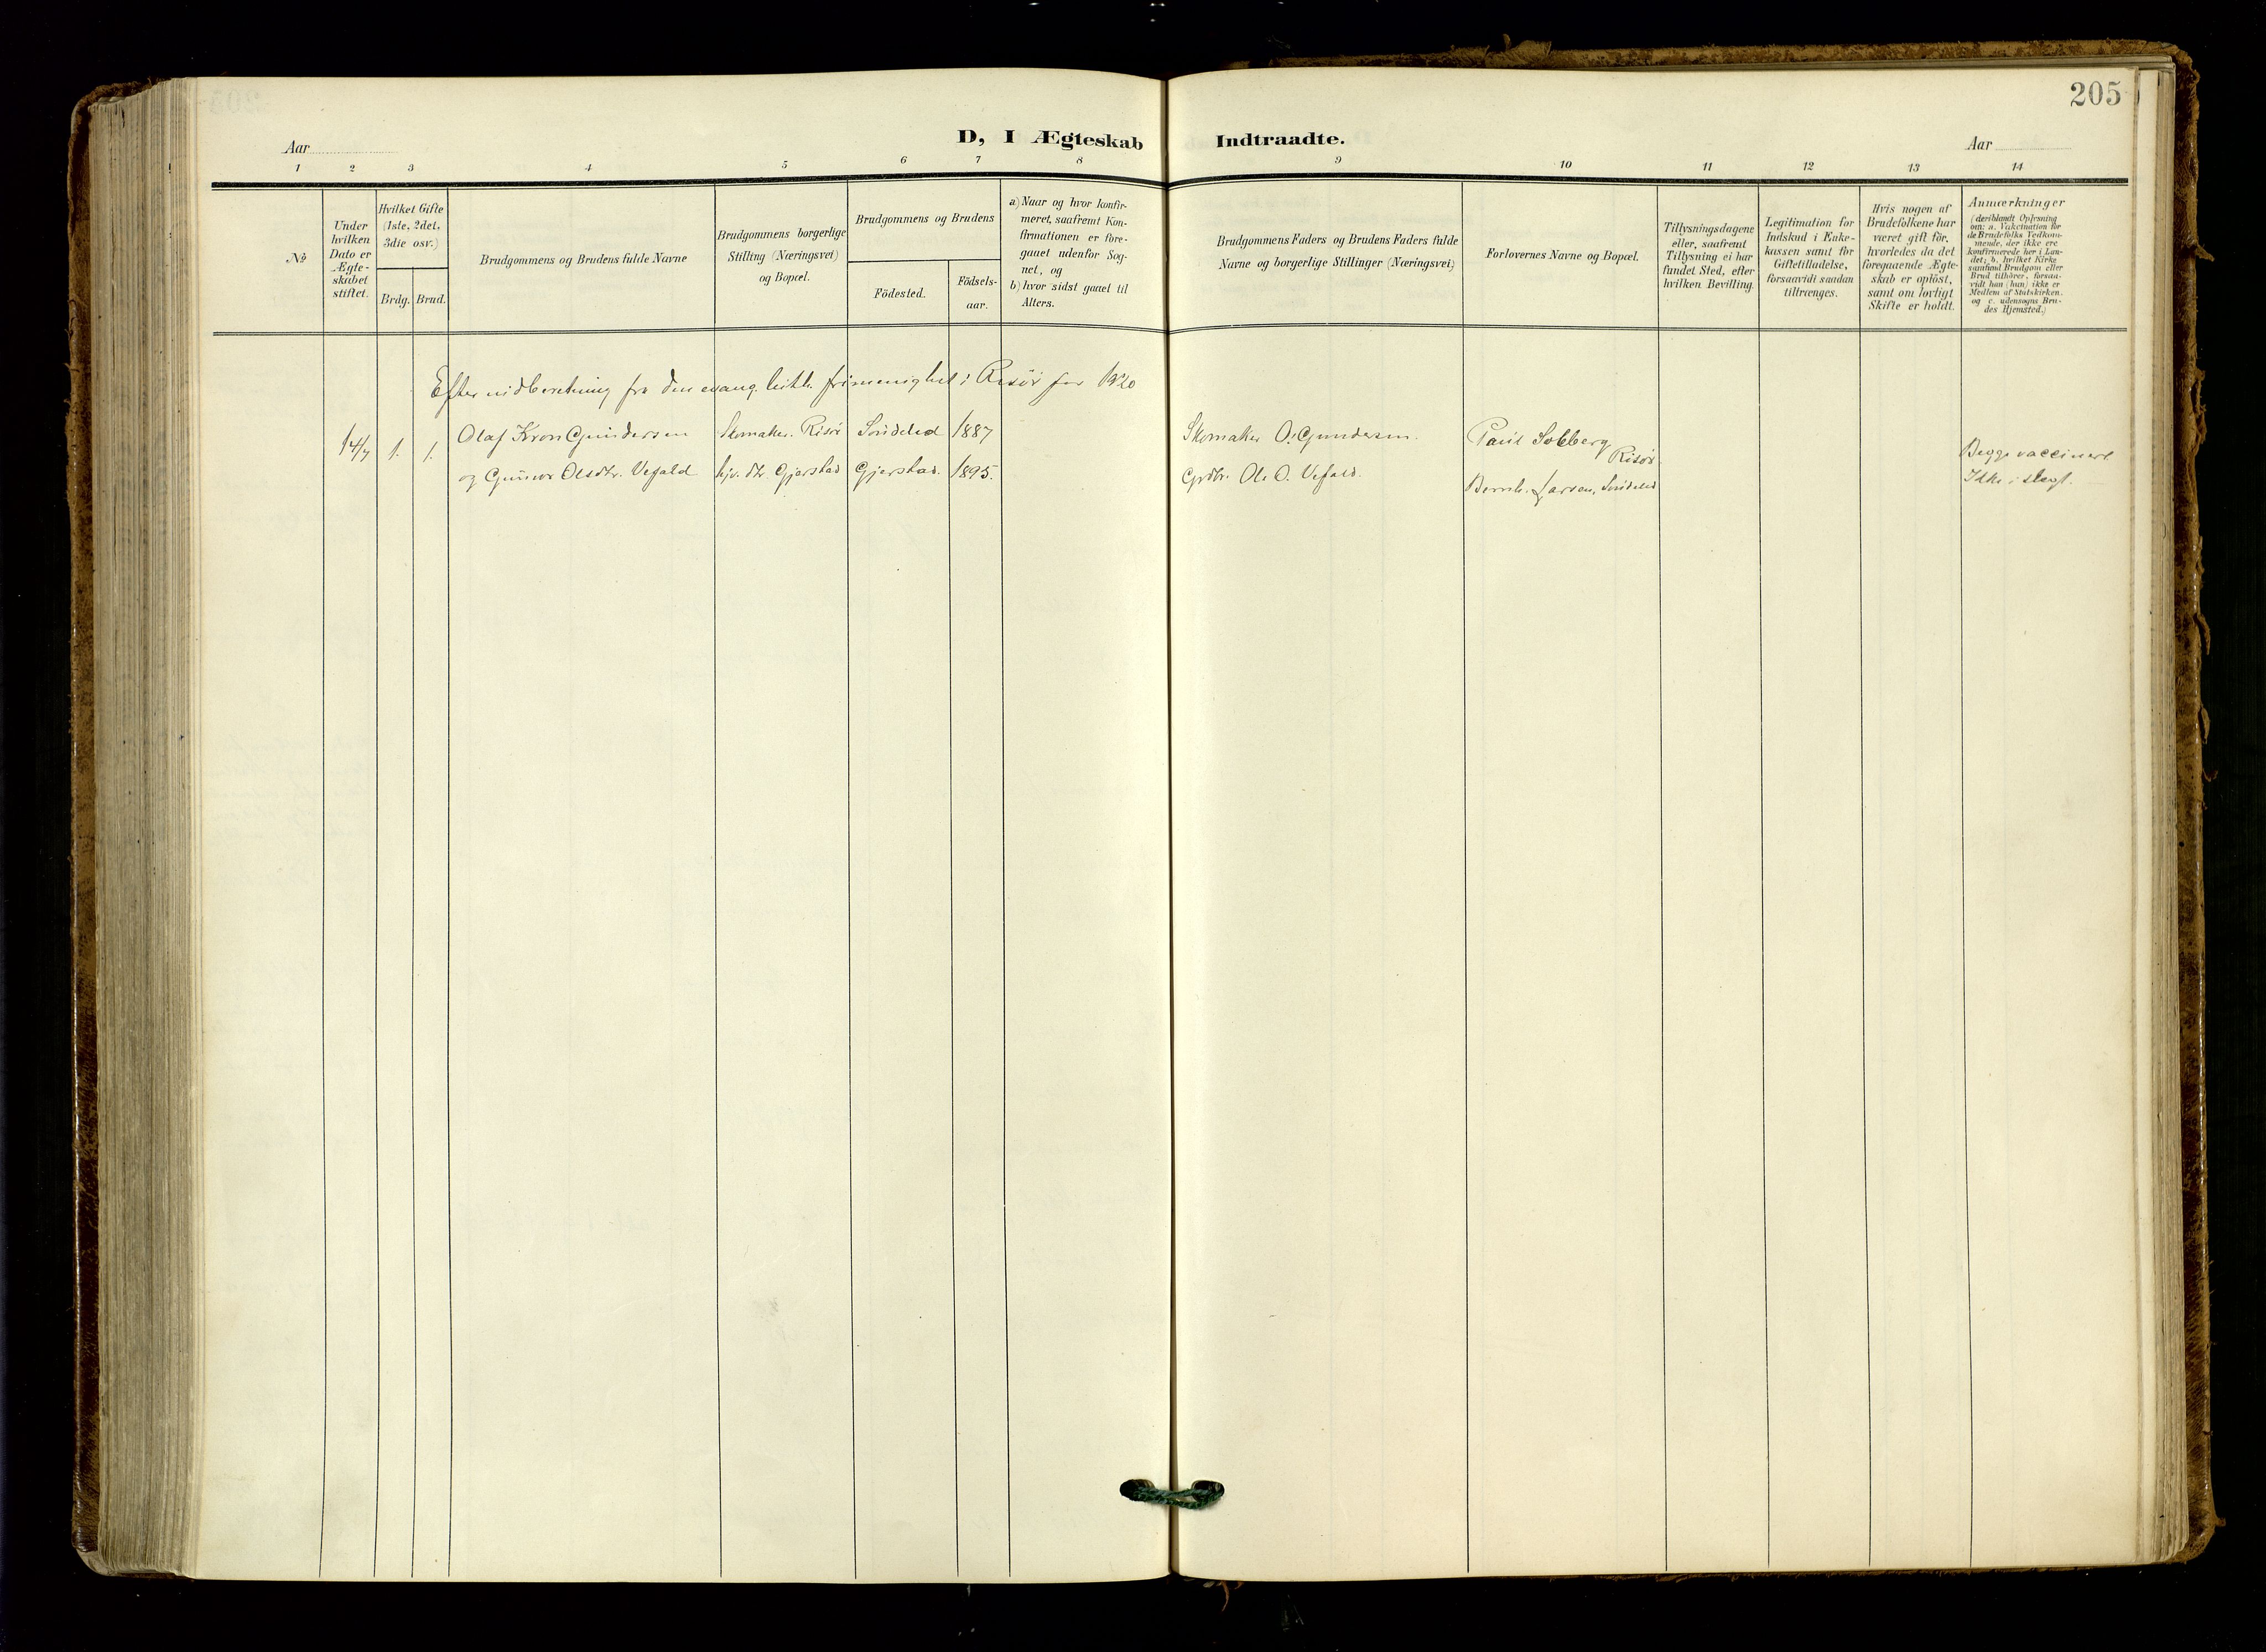 205
D, I Ægteskab Indtraadte.
Aar
Aar
1 2 3 4 5 6 7 8 9 10 11 12 13 14
No
Under
hvilken
Dato er
Ægte-
skabet
stiftet.
Hvilket Gifte
(1ste, 2det,
3die osv.)
Brdg. Brud.
Brudgommens og Brudens fulde Navne
Brudgommens borgerlige
Stilling (Næringsvei)
og Bopæl.
Brudgommens og Brudens
Födested.
Födsels-
aar.
a) Naar og hvor konfir-
meret, saafremt Kon-
firmationen er fore-
gaaet udenfor Sog-
net, og
b) hvor sidst gaaet til
Alters.
Brudgommens Faders og Brudens Faders fulde
Navne og borgerlige Stillinger (Næringsvei)
Forlovernes Navne og Bopæl.
Tillysningsdagene
eller, saafremt
Tillysning ei har
fundet Sted, efter
hvilken Bevilling.
Legitimation for
Indskud i Enke-
kassen samt for
Giftetilladelse,
forsaavidt saadan
tiltrænges.
Hvis nogen af
Brudefolkene har
været gift för,
hvorledes da det
foregaaende Ægte-
skab er oplöst,
samt om lovligt
Skifte er holdt.
Anmærkninger
(deriblandt Oplysning
om: a. Vakcination for
de Brudefolks Vedkom-
mende, der ikke ere
konfirmerede her i Lan-
det; b. hvilket Kirke
samfund Brudgom eller
Brud tilhörer, forsaa-
vidt han (hun) ikke er
Medlem af Statskirken.
og c. udensogns Bru-
des Hjemsted.)
Efter indberetning fra den evang. luth. frimenighet i Risör for 1920
14/7 1. 1. Olaf Kron Gundersen Skomaker. Risör Söndeled 1887 Skomaker O. Gundersen. Paul Solberg
Risör.
og Gunvor Olsdtr. Vefald hjv. dtr Gjerstad Gjerstad. 1895. Grdbr. Ole O. Vefald. Bernh. Larsen, Söndeled
Begge vaccinert
Ikke i slegt.